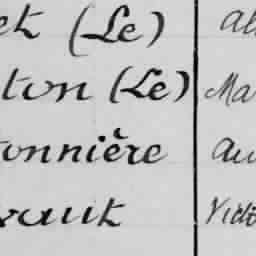 et (Le) Al
ton (Le) Ma
onnière Au
vault Vict